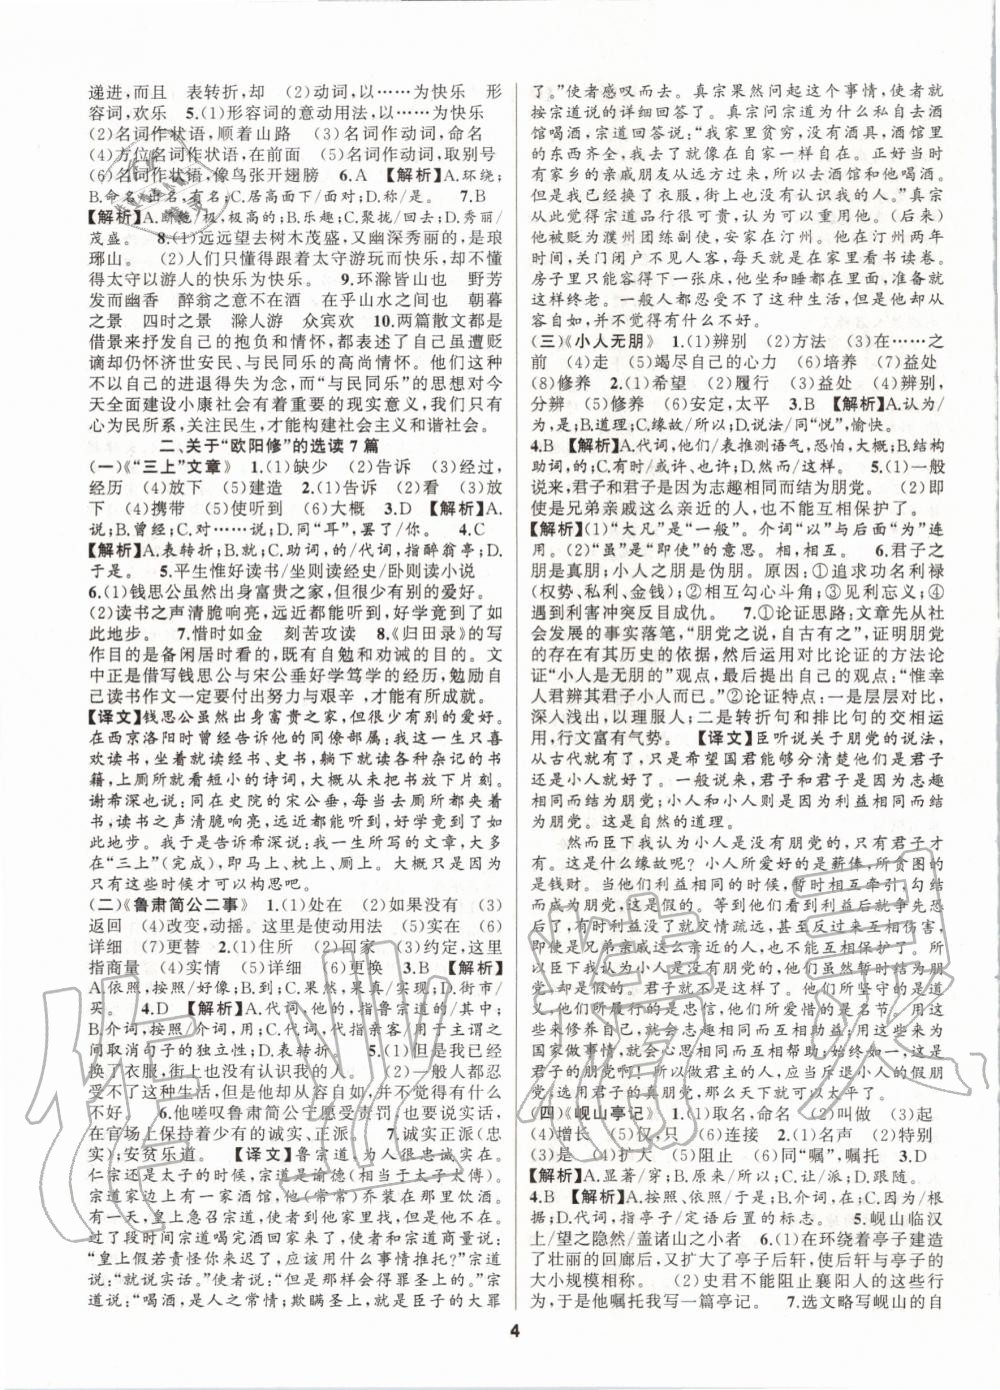 递进,而且　表转折,却　(2)动词,以……为快乐　形
容词,欢乐　5.(1)形容词的意动用法,以……为快乐
(2)名词作状语,顺着山路　(3)名词作动词,命名
(4)方位名词作状语,在前面　(5)名词作动词,取别号
(6)名词作状语,像鸟张开翅膀　6.A　【解析】A.环绕;
B.命名/出名,有名;C.居高面下/面对;D.称/是。　7.B
【解析】A.断绝/极,极高的;B.乐趣;C.聚拢/回去;D.秀丽/
茂盛。　8.(1)远远望去树木茂盛,又幽深秀丽的,是琅
琊山。　(2)人们只懂得跟着太守游玩而快乐,却不懂
得太守以游人的快乐为快乐。　9.环滁皆山也　野芳
发而幽香　醉翁之意不在酒　在乎山水之间也　朝暮
之景　四时之景　滁人游　众宾欢　10.两篇散文都是
借景来抒发自己的抱负和情怀,都表述了自己虽遭贬
谪却仍怀济世安民、与民同乐的高尚情怀。他们不会
为自己的进退得失为念,而“与民同乐”的思想对今
天全面建设小康社会有着重要的现实意义,我们只有
心为民所系,关注民生,才能构建社会主义和谐社会。
二、关于“欧阳修”的选读7篇
(一)《“三上”文章》　1.(1)缺少　(2)告诉　(3)经过,
经历　(4)放下　(5)建造　2.(1)告诉　(2)看　(3)放
下　(4)携带　(5)嘱咐　(6)大概　3.D　【解析】A.
说;B.曾经;C.对……说;D.同“耳”,罢了/你。　4.C
【解析】A.表转折,却;B.就;C.助词,的/代词,指醉翁亭;D.
于是。　5.平生惟好读书/坐则读经史/卧则读小说
6.(1)钱思公虽然出身富贵之家,但很少有别的爱好。
(2)读书之声清脆响亮,远近都能听到,好学竟到了如
此地步。　7.惜时如金　刻苦攻读　8.《归田录》的写
作目的是备闲居时看的,既有自勉和劝诫的目的。文
中正是借写钱思公与宋公垂好学笃学的经历,勉励自
己读书作文一定要付出努力与艰辛,才能有所成就。
【译文】钱思公虽然出身富贵之家,但很少有别的爱好。
在西京洛阳时曾经告诉他的同僚部属:我这一生只喜
欢读书,坐着就读经书、史书,躺下就读各种杂记的书
籍,上厕所就看短小的诗词,大概从未把书放下片刻。
谢希深也说:同在史院的宋公垂,每当去厕所都夹着
书,读书之声清脆响亮,远近都能听到,好学竟到了如
此地步。我于是告诉希深说:我一生所写的文章,大多
在“三上”(完成),即马上、枕上、厕上。大概只有
只有这些时候才可以构思吧。
(二)《鲁肃简公二事》　1.(1)处在　(2)如果没有　(3)
返回　(4)改变,动摇。这里是使动用法　(5)实在　(6)
详细　(7)更替　2.(1)住所　(2)回家　(3)约定,这里
指商量　(4)实情　(5)详细　(6)更换　3.B　【解析】
A.依照,按照/好像;B.到;C.果然,果真/实现;D.街市/
买。　4.D　【解析】A.代词,他的,指鲁宗道的/其中;
B.介词,按照/介词,用;C.代词,指代亲客/用于主谓之
间取消句子的独立性;D.表转折。　5.(1)但是我已经
换了衣服,街上也没有认识我的人。　(2)一般人都忍受
不了这种生活,但他却从容自如,并不觉得有什么
不好。　6.他嗟叹鲁肃简公宁愿受责罚,也要说实话,
在官场上保持着少有的诚实、正派。　7.诚实正派(忠
实);安贫乐道。　【译文】鲁宗道,为人很忠诚实在。
仁宗还是太子的时候,宗道是谕德(相当于太子太傅)。
宗道家边上有一家酒馆,他(常常)乔装在那里饮酒。
有一天,皇上急召宗道,使者到他家里找他,但他不在。
过了段时间宗道喝酒回来了,使者和宗道商量说:
“皇上假若责怪你来迟了,应该用什么事情推托?”宗道
说:“就说实话。”使者说:“但是那样会得罪圣上的。”宗
道说:“喝酒,是人之常情;欺瞒圣上,就是臣子的大罪
了。”使者感叹而去。真宗果然问起这个事情,使者就
按宗道说的详细回答了。真宗问宗道为什么私自去酒
馆喝酒,宗道回答说:“我家里贫穷,没有酒具,酒馆里
的东西齐全,我去那里就像在自家一样自在。正好当时
有家乡的亲戚朋友从远方过来,所以去酒馆和他喝酒。
但是我已经换了衣服,街上也没有认识我的人。”真宗
从此觉得宗道品行很可贵,认为可以重用。(后来)
他被贬为濮州团练副使,安家在汀州。他在汀州两年
时间,关门闭户不见人,每天就是在那里看书读卷。
房子里只能容得下一张床,他坐和睡都在那里,且就
这样终老。一般人都忍受不了这种生活,但他却从
容自如,并不觉得有什么不好。
(三)《小人无朋》　1.(1)辨别　(2)方法　(3)在……之
前　(4)走　(5)竭尽自己的心力　(6)培养　(7)益处
(8)修养　2.(1)希望　(2)履行　(3)益处　(4)辨别,
分辨　(5)修养　(6)安定,太平　3.B　【解析】A.认为/
为,是;B.道理;C.缘故/所以;D.说法/同“悦”,愉快。
4.B　【解析】A.代词,他们/表推测语气,恐怕,大概;B.结构
助词,的;C.有时/或许、也许;D.然而/这样。　5.(1)一般
说来,君子和君子是因为志趣相同而结为朋党。　(2)即
使是兄弟亲戚这么亲近的人,也不能互相保护了。
【解析】(1)“大凡”是“一般”。介词“以”与后面“为”连
用。(2)“虽”是“即使”的意思。相,相互。　6.君子之
朋是真朋;小人之朋是伪朋。原因:①追求功名利禄
(权势、私利、金钱);②相互勾心斗角;③见利忘义;④
遇到利害冲突反目成仇。　7.①论证思路:文章先从社
会发展的事实落笔,“朋党之说,自古有之”,证明朋党
的存在有其历史的依据,然后运用对比论证的方法论
证“小人是无朋的”观点,最后提出自己的观点:“惟幸
人君辨其君子小人而已。”②论证特点:一是层层对比,
深入浅出,以理服人;二是转折句和排比句的交相运
用,行文富有气势。　【译文】臣听说关于朋党的说法,
从古代就有了,只是希望国君能够分清楚他们是君子
还是小人就行了。一般说来,君子和君子是因为志趣
相同而结为朋党,小人和小人则是因为利益相同而结
为朋党。这是自然的道理。
然而臣下我认为小人是没有朋党的,只有君子才
有。这是什么缘故呢?小人所爱好的是薪俸,所贪图的
是钱财。当他们利益相同的时候,暂时相互牵引,勾结
而成为朋党,这是虚假的。等到他们见到利益而争先
恐后,或者利益没了就交情疏远,甚至反过来互相残害,
即使是兄弟亲戚这么亲近的人,也不能互相保护了。所
以臣下我认为小人没有朋党,他们暂时结为朋
党,是虚假的。君子就不是这样了。他们所坚守的是道
义,他们所履行的是忠信,他们所爱惜的是名节。用这
些来修养自己,就会志趣相同而互相得益;用这些来为
国家做事情,就会同心思而相互帮助;始终如一,这就
是君子的朋党啊!所以做君主的人,应当斥退小人的假
朋党,选用君子的真朋党,那么天下就可以大治了。
(四)《岘山亭记》　1.(1)取名,命名　(2)叫做　(3)起
(4)增长　(5)只,仅　(6)连接　2.(1)名声　(2)特别
(3)是　(4)扩大　(5)阻止　(6)同“嘱”,嘱托　3.D
【解析】A.显著/穿;B.原来/所以;C.让/派;D.跟随。
4.B　【解析】A.按照、依照/于是;B.介词,在;C.然而/
承接;D.代词,指亭子/定语后置的标志。　5.岘山临汉
上/望之隐然/盖诸山之小者　6.(1)在环绕着亭子建造
了壮丽的回廊后,又扩大了亭子后轩,使后轩与亭子的
大小规模相称。　(2)史君不能阻止襄阳人的这些行
为,于是他嘱托我写一篇亭记。　7.选文略写岘山的自
4
作业精灵